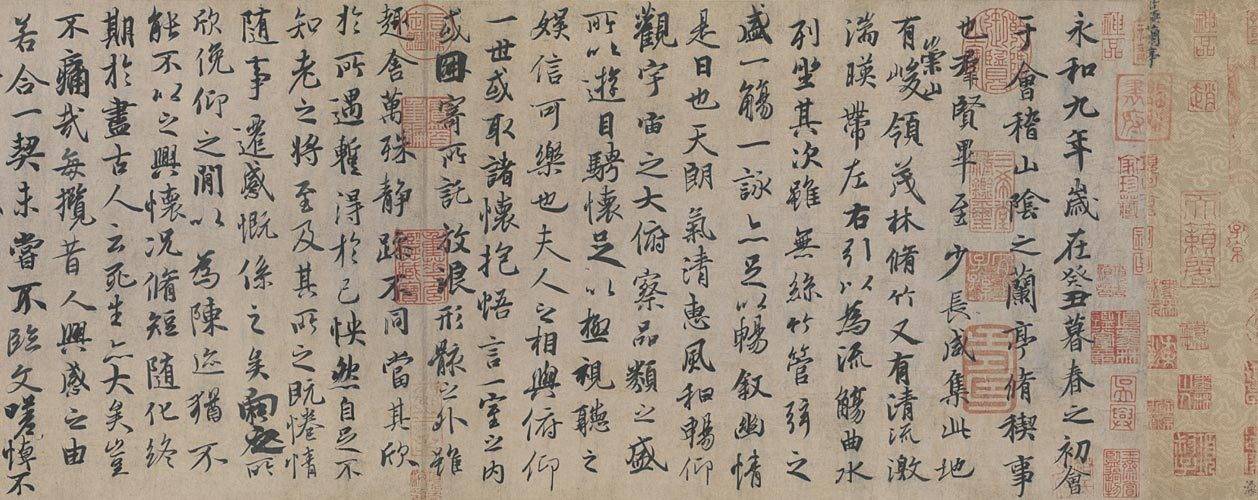 永和九年歲在癸丑暮春之初會
于會稽山陰之蘭亭脩稧事
也羣賢畢至少長咸集此地
有崇山峻領茂林脩竹又有清流激
湍暎帶左右引以為流觴曲水
列坐其次雖無絲竹管弦之
盛一觴一詠亦足以暢敘幽情
是日也天朗氣清惠風和暢仰
觀宇宙之大俯察品類之盛
所以遊目騁懷足以極視聽之
娛信可樂也夫人之相與俯仰
一世或取諸懷抱悟言一室之內
或因寄所託放浪形骸之外雖
趣舍萬殊靜躁不同當其欣
於所遇蹔得於己怏然自足不
知老之將至及其所之既惓情
隨事遷感慨係之矣向之所
欣俛仰之閒以為陳迹猶不
能不以之興懷況脩短隨化終
期於盡古人云死生亦大矣豈
不痛哉每攬昔人興感之由
若合一契未嘗不臨文嗟悼不